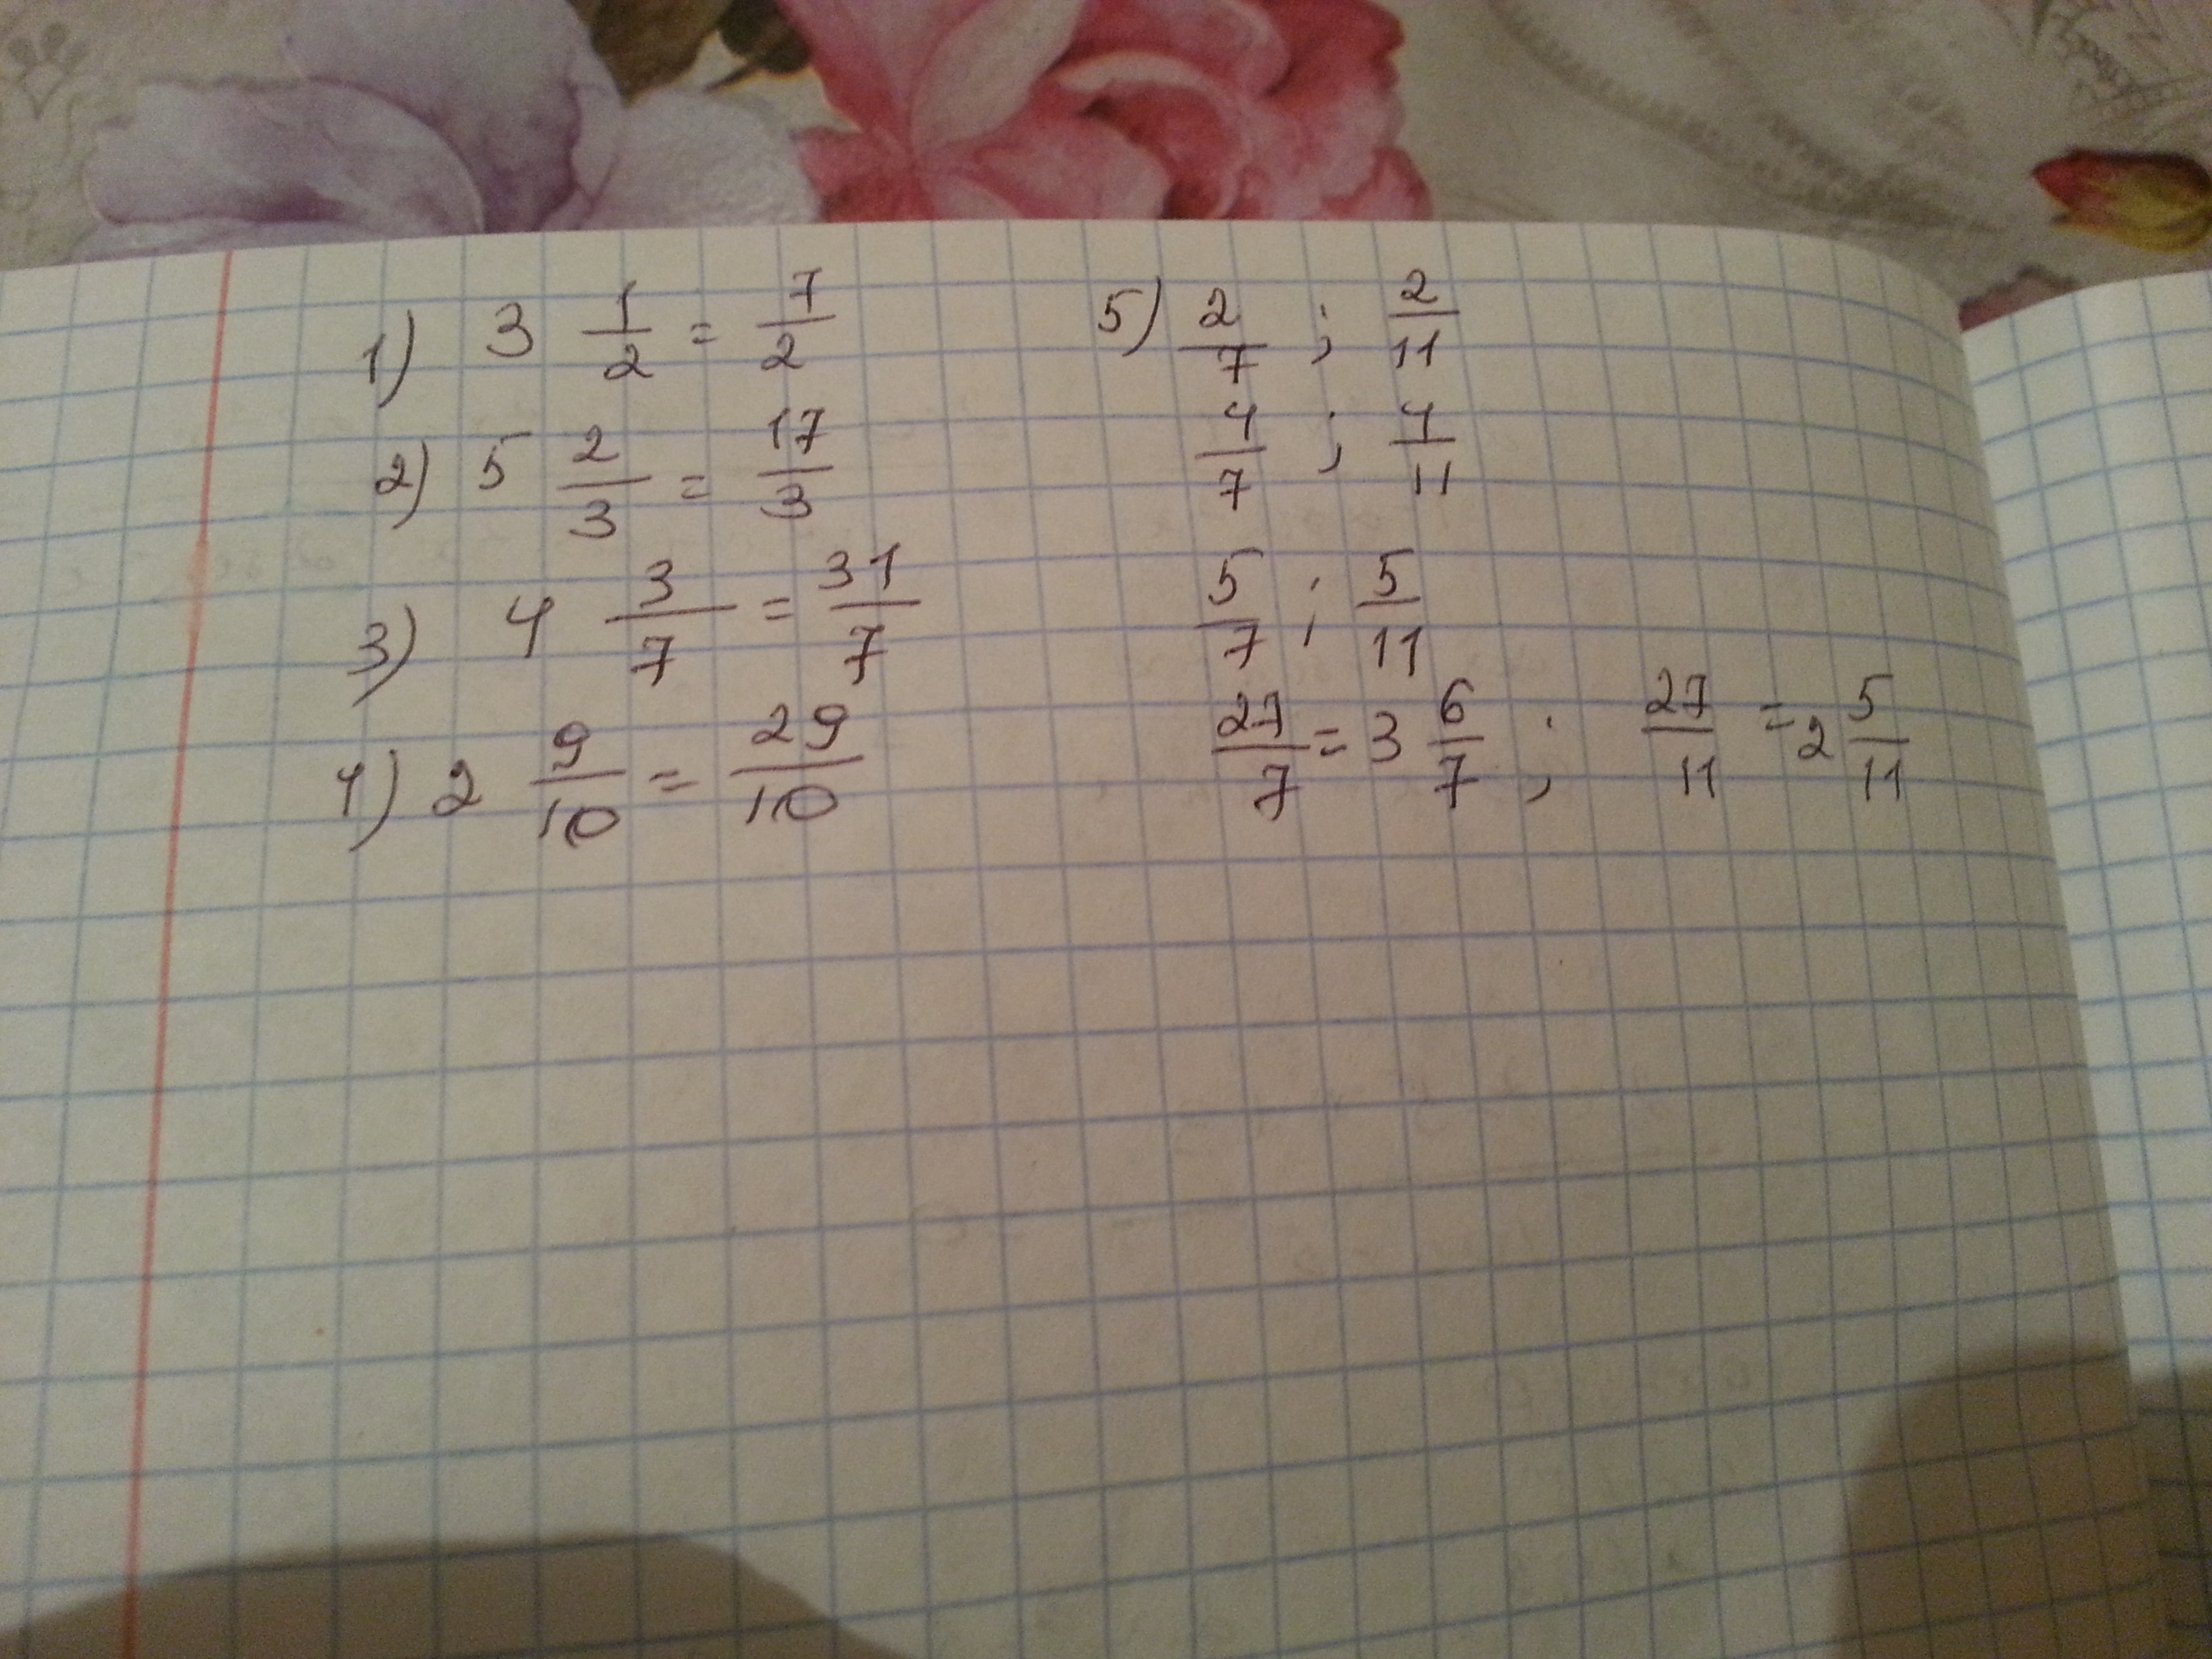 1) 3 1/2 = 7/2
2) 5 2/3 = 17/3
3) 4 3/7 = 31/7
4) 2 9/10 = 29/10
5) 2/7 ; 2/11
4/7 ; 4/11
5/7 ; 5/11
27/7 = 3 6/7 ; 27/11 = 2 5/11